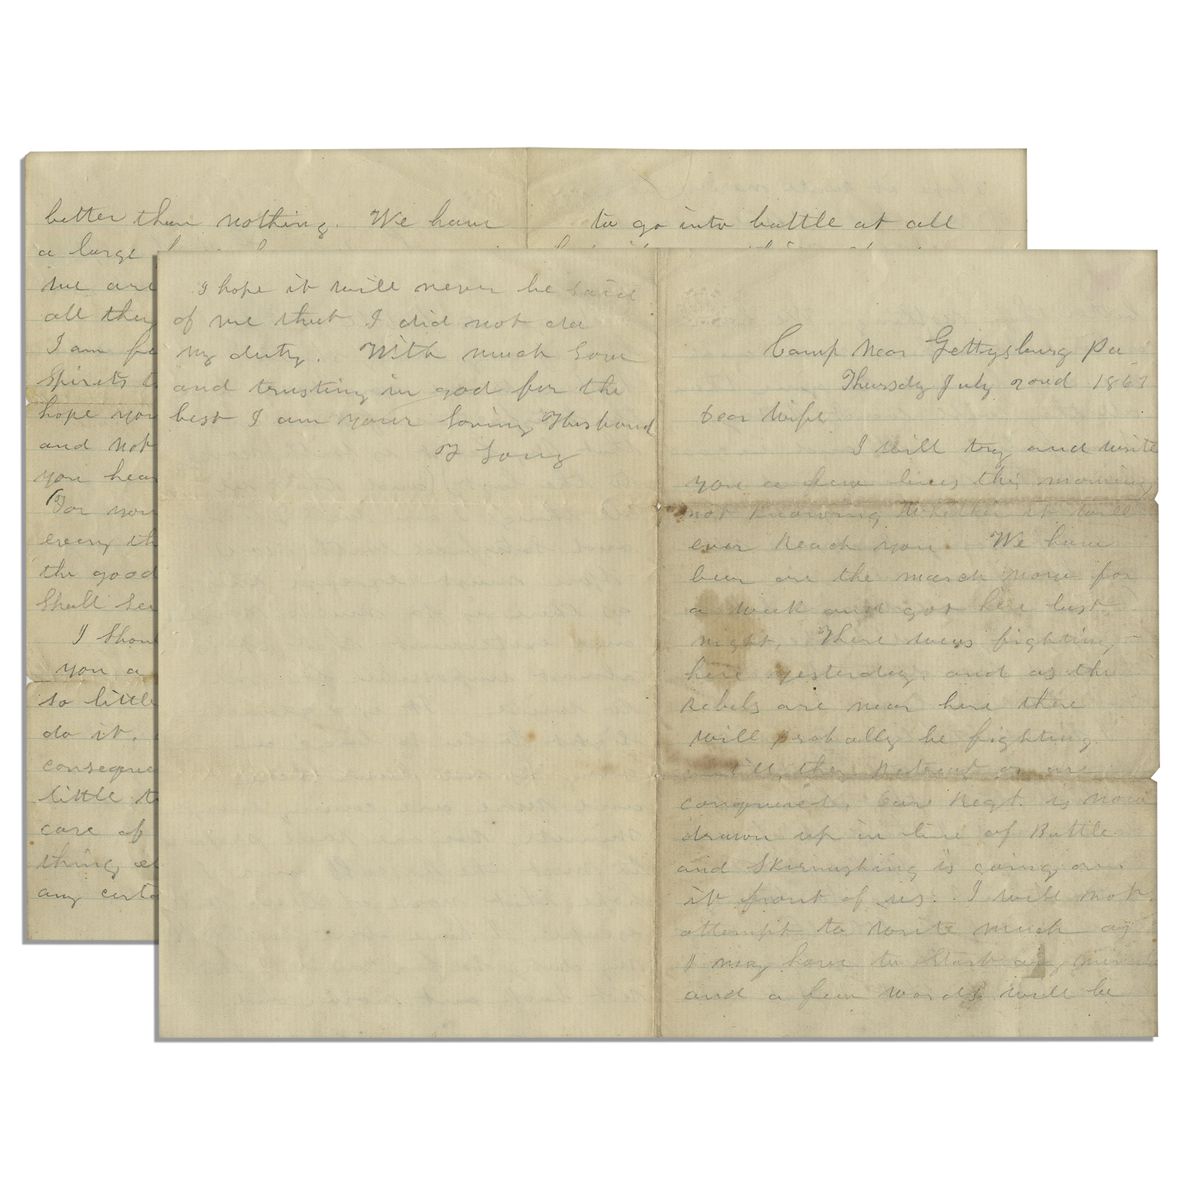 Camp Near Gettysburg Pa
Thursdy July 2ond 1863
Dear Wife
I will try and write
you a few lines this morning
not knowing Whether it will
ever Reach you We have
been on the march now for
a week and got here last
night. There was fighting
here yesterday and as the
Rebels are near here there
will probally be fighting
untill they Retreat or are
conquered. Our Regt. is now
drawn up in line of Battle
and Skirmishing is going on
in front of us. I will not
attempt to write much as
I may have to start any minute
and a few words will be
better than nothing. We have
a large
we are
all they
I am
spirits
hope you
and not
you hear
For now
every th
the good
shall
I shou
you a
so little
do it,
conseque
little t
care of
thing
any certa
to go into battle at all
I hope it will never be said
of me that I did not do
my duty. With much Love
and trusting in god for the
best I am your loving Husband